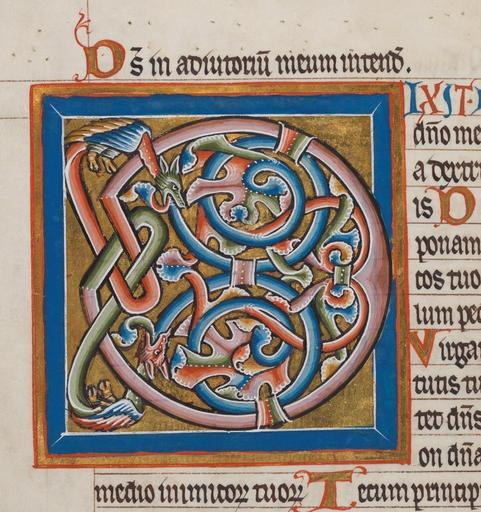 Ds̄ in adiutoriū meum intend̄.
DIXIT·D
dño me
a dextri
is D
ponam
cos tuo
lum ped
Virgam
tutis tu
tet dñs
on dña
medio inimicoꝝ tuoꝝ Tecum princip